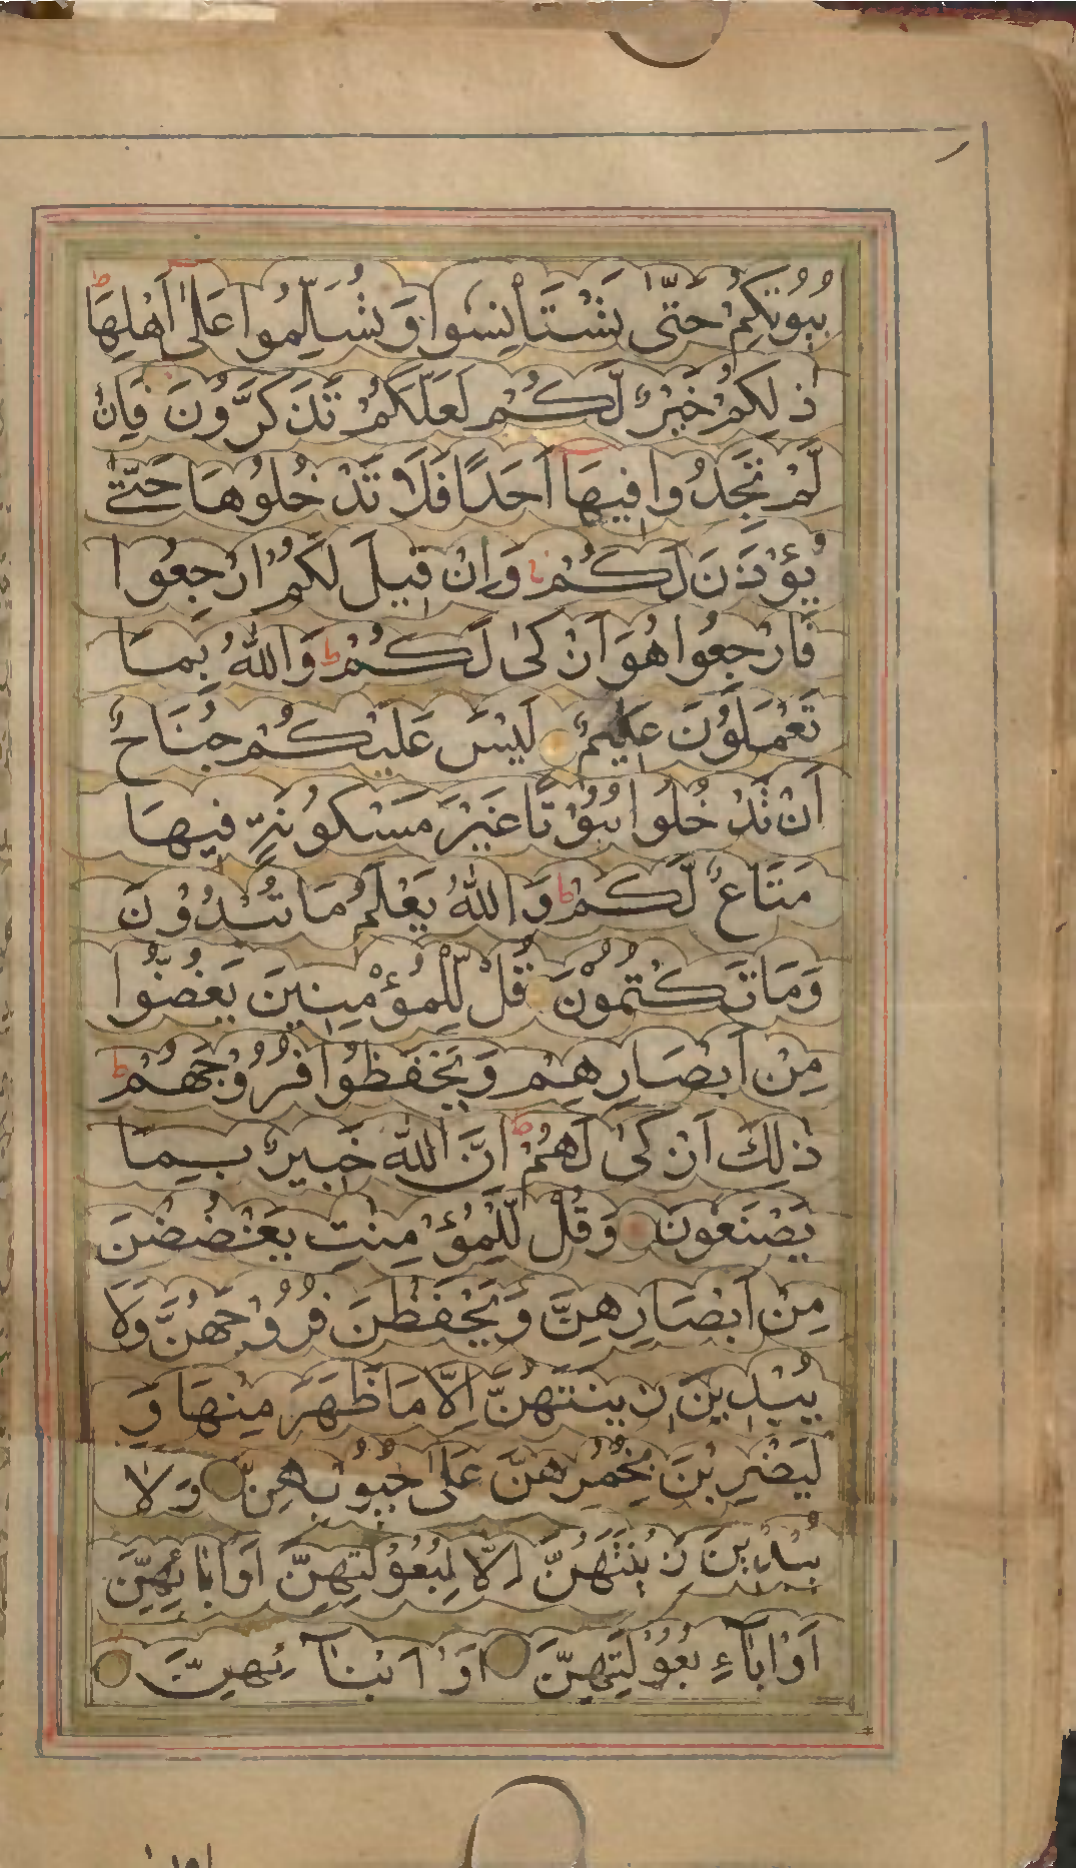 بُيُوتِكُمْ حَتّٰى تَسْتَأْنِسُوا وَتُسَلِّمُوا عَلٰٓى اَهْلِهَا ط
ذٰلِكُمْ خَيْرٌ لَّكُمْ لَعَلَّكُمْ تَذَكَّرُونَ فَاِنْ
لَّمْ تَجِدُوا فِيهَآ اَحَدًا فَلَا تَدْخُلُوهَا حَتّٰے
يُؤْذَنَ لَكُمْ وَاِنْ قِيلَ لَكُمُ ارْجِعُوا
فَارْجِعُوا هُوَ اَزْكٰى لَكُمْ ط وَاللّٰهُ بِمَا
تَعْمَلُوْنَ عَلِيْمٌ لَيْسَ عَلَيْكُمْ جُنَاحٌ
اَنْ تَدْخُلُوا بُيُوْتًا غَيْرَ مَسْكُونَةٍ فِيهَا
مَتَاعٌ لَّكُمْ ط وَاللّٰهُ يَعْلَمُ مَا تُبْدُوْنَ
وَمَا تَكْتُمُوْنَ قُلْ لِّلْمُؤْمِنِينَ يَغُضُّوا
مِنْ اَبْصَارِهِمْ وَيَحْفَظُوْا فُرُوْجَهُمْ ط
ذٰلِكَ اَزْكٰى لَهُمْ ط اِنَّ اللّٰهَ خَبِيرٌ بِمَا
يَصْنَعُونَ وَقُلْ لِّلْمُؤْمِنٰتِ يَغْضُضْنَ
مِنْ اَبْصَارِهِنَّ وَيَحْفَظْنَ فُرُوْجَهُنَّ وَلَا
يُبْدِينَ زِينَتَهُنَّ اِلَّا مَا ظَهَرَ مِنْهَا وَ
لْيَضْرِبْنَ بِخُمُرِهِنَّ عَلٰى جُيُوْبِهِنَّ وَلَا
يُبْدِيْنَ زِيْنَتَهُنَّ اِلَّا لِبُعُوْلَتِهِنَّ اَوْ اٰبَائِهِنَّ
اَوْ اٰبَآءِ بُعُوْلَتِهِنَّ اَوْ اَبْنَآئِهِنَّ